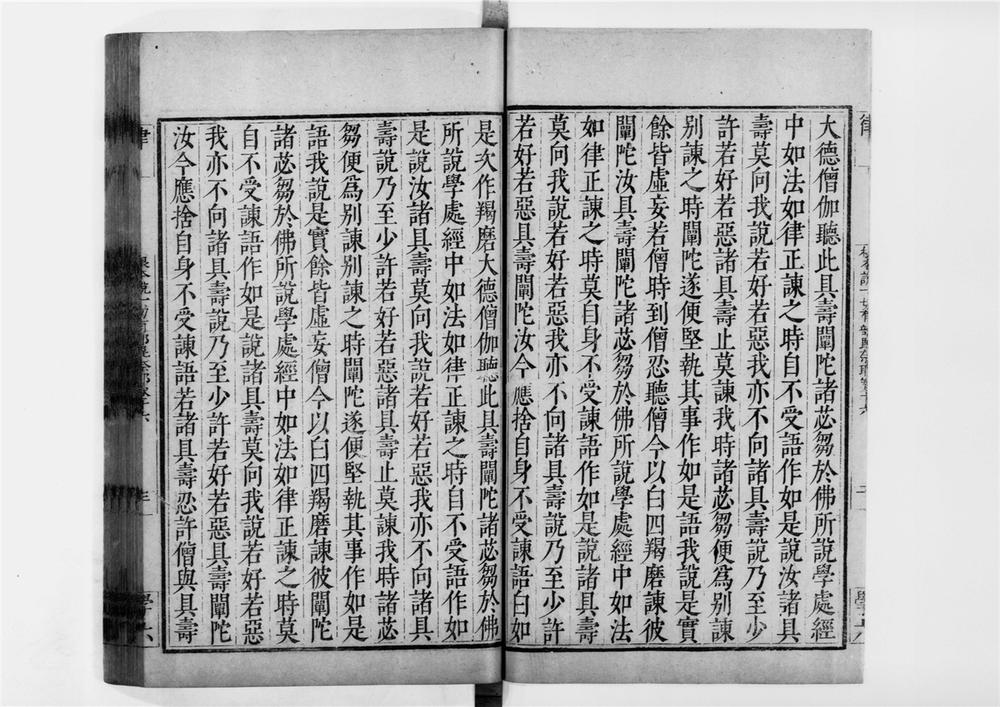 大德僧伽聽此具壽闡陀諸苾芻於佛所說學處經
中如法如律正諫之時自不受語作如是說汝諸具
壽莫向我說若好若惡我亦不向諸具壽說乃至少
許若好若惡諸具壽止莫諫我時諸苾芻便爲別諫
別諫之時闡陀遂便堅執其事作如是語我說是實
餘皆虛妄若僧時到僧忍聽僧今以白四羯磨諫彼
闡陀汝具壽闡陀諸苾芻於佛所說學處經中如法
如律正諫之時莫自身不受諫語作如是說諸具壽
莫向我說若好若惡我亦不向諸具壽說乃至少許
若好若惡具壽闡陀汝今應捨自身不受諫語白如
是次作羯磨大德僧伽聽此具壽闡陀諸苾芻於佛
所說學處經中如法如律正諫之時自不受語作如
是說汝諸具壽莫向我說若好若惡我亦不向諸具
壽說乃至少許若好若惡諸具壽止莫諫我時諸苾
芻便爲別諫別諫之時闡陀遂便堅執其事作如是
語我說是實餘皆虛妄僧今以白四羯磨諫彼闡陀
諸苾芻於佛所說學處經中如法如律正諫之時莫
自不受諫語作如是說諸具壽莫向我說若好若惡
我亦不向諸具壽說乃至少許若好若惡具壽闡陀
汝今應捨自身不受諫語若諸具壽忍許僧與具壽